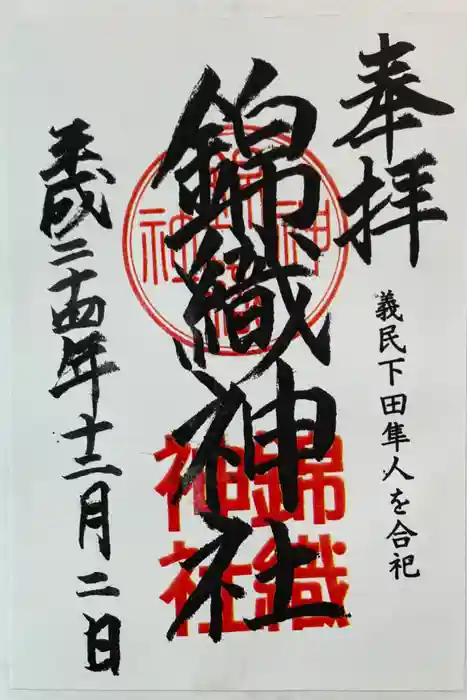 奉拝
義民下田隼人を合祀
錦織神社
錦織
神社
平成二十四年十二月二日